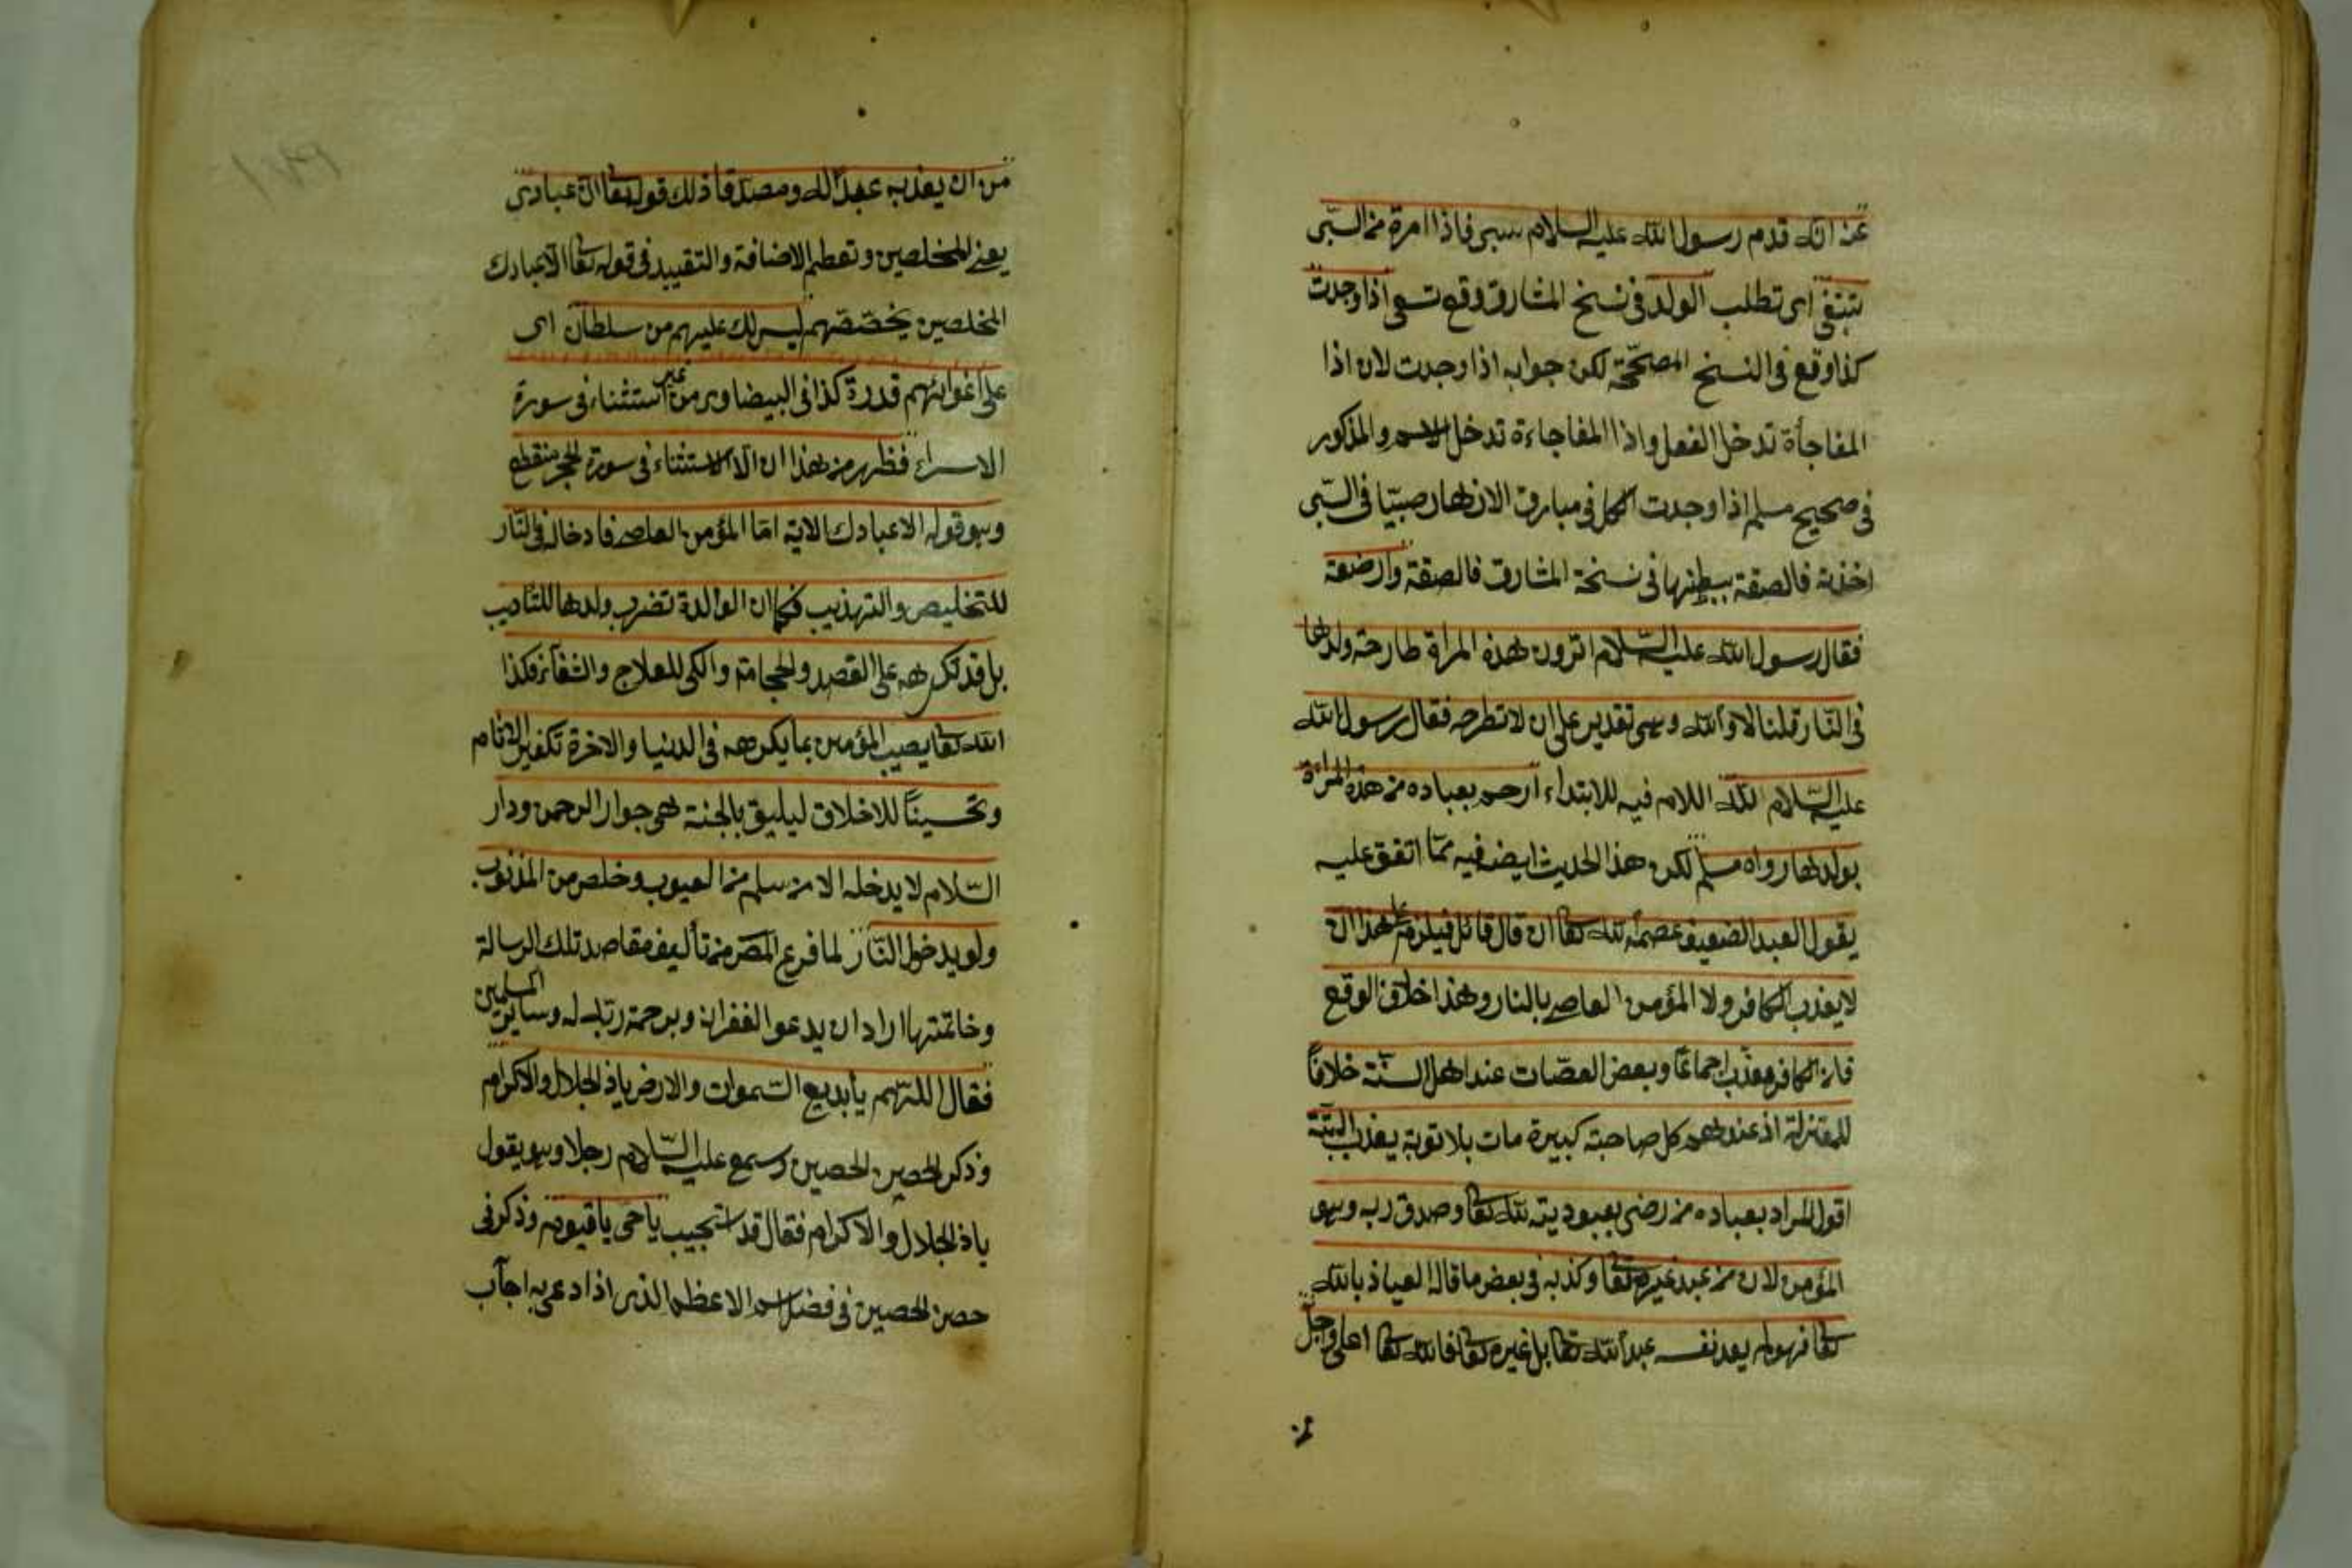 عنه انه قدم رسول الله عليه السلام سبى فاذا امرة من السبى
تبتغى اى تطلب الولد فى نسخ المشارق وقع تسعى اذا وجدت
كذا وقع فى النسخ المصححة لكن جوابه اذا وجدت لان اذا
المفاجأة تدخل الفعل واذا المفاجاءة تدخل الاسم والمذكور
فى صحيح مسلم اذا وجدت كما فى مبارق الازهار صبيّا فى السّبى
اخذته فالصقته ببطنها فى نسخة المشارق فالصقته وارضعته
فقال رسول الله عليه السّلام اترون هذه المراة طارحة ولدها
فى النّار قلنا لا والله وهى تقدير على ان لا تطرحه فقال رسول الله
عليه السّلام لله اللام فيه للابتداء ارحم بعباده من هذه المراة
بولدها رواه مسلم لكن هذا الحديث ايضا فيه ممّا اتفق عليه
يقول العبد الضعيف عصمه الله تعا ان قال قائل فيلزم على هذا ان
لا يعذب الكافر ولا المؤمن العاصى بالنار وهذا خلاف الوقع
فان الكافر معذب اجماعًا وبعض العصّات عند اهل السنّة خلافًا
للمعتزلة اذ عندهم كل صاحبة كبيرة مات بلا توبة يعذب البتّة
اقول المراد بعباده من رضى بعبوديته لله تعا وصدق ربه وهو
المؤمن لان من عبد غيره تعا وكذبه فى بعض ما قاله العياذ بالله
تعا فهو لم يعد نفسه عبد الله تعا بل غيره تعا فالله تعا اعلى وجلّ
من
من ان يعذب عبدًا له ومصدقا ذلك قوله تعا ان عبادى
يعنى المخلصين وتعظيم الاضافة والتقييد فى قوله تعا الا عبادك
المخلصين يخصّصهم ليس لك عليهم من سلطان اى
على اغوائهم قدرة كذا فى البيضاوى من غير استثناء فى سورة
الاسراء فظهر من هذا ان الا الاستثناء فى سورة الحجر منقطع
وهو قوله الا عبادك الاية امّا المؤمن العاصى فادخاله فى النّار
للتخليص والتهذيب فكما ان الوالدة تضرب ولدها للتاديب
بل قد تكرهه على الفصد والحجامة والكى للعلاج والشفآء فكذا
الله تعا يصيب المؤمن بما يكرهه فى الدنيا والاخرة تكفير الاثام
وتحسينًا للاخلاق ليليق بالجنة هى جوار الرحمن ودار
السّلام لا يدخله الا من سلم من العيوب وخلص من الذنوب
ولو بدخول النّار لما فرغ المص من تأليف مقاصد تلك الرسالة
وخاتمتها اراد ان يدعو الغفران وبرحمة ربه له وسائر المسلمين
فقال اللّهم يا بديع السّموات والارض يا ذا الجلال والاكرام
وذكر الحصن الحصين وسمع عليه السّلام رجلا وهو يقول
يا ذا الجلال والاكرام فقال قد استجيب يا حى يا قيوم وذكر فى
حصن الحصين فى فضل اسم الاعظم الذى اذا دعى به اجآب